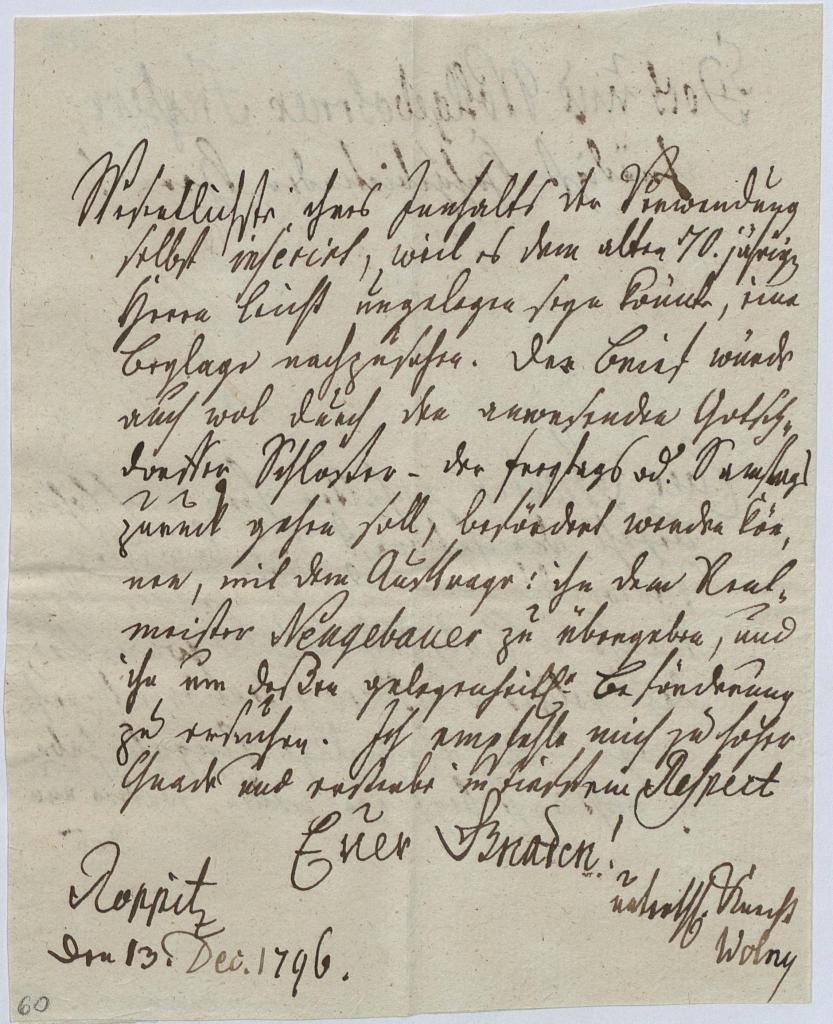 Wesentlichste ihres Innhalts der Verwendung
selbst inserirt, weil es dem alten 70. jährig.
Herrn leicht ungelegen seyn könnte, eine
Beylage nachzusehen. Der Brief würde
auch wol durch den anwesenden Gotsch-
dorffer Schloßer - der freytags od. Samstags
zurück gehen soll, befördert werden kön-
nen, mit dem Auftrage: ihn dem Rent-
meister Neugebauer zu übergeben, und
ihn um deßen gelegenheitl. Beförderung
zu ersuchen. Ich empfehle mich zu hoher
Gnade und ersterbe in tiefstem Respect
Euer Gnaden!
Roppitz
den 13. Dec. 1796.
unterth. Knecht
Wolny
60